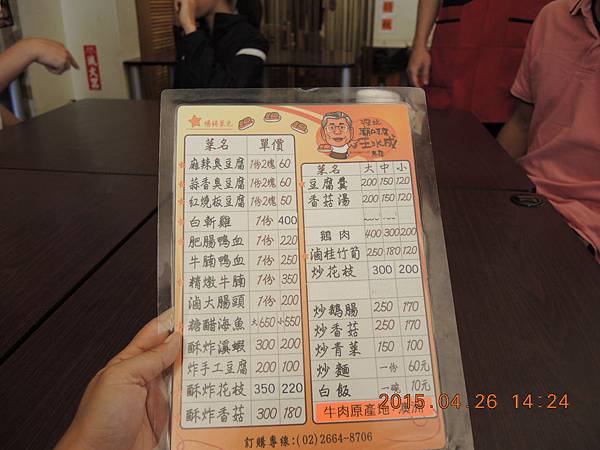 暢銷菜色
菜名 單價
麻辣臭豆腐 1份2塊 60
蒜香臭豆腐 1份2塊 60
紅燒板豆腐 1份2塊 50
白斬雞 1份 400
肥腸鴨血 1份 220
牛腩鴨血 1份 250
精燉牛腩 1份 350
滷大腸頭 1份 200
糖醋海魚 大650 小550
酥炸溪蝦 300 200
炸手工豆腐 200 100
酥炸花枝 350 220
酥炸香菇 300 180
王水成
菜名 大 中 小
豆腐羹 200 150 120
香菇湯 200 150 120
鵝肉 400 300 200
滷桂竹筍 250 180 120
炒花枝 300 200
炒鵝腸 250 170
炒香菇 250 170
炒青菜 150 100
炒麵 一份 60元
白飯 一碗 10元
牛肉原產地:澳洲
訂購專線:(02)2664-8706
2015.04.26 14:24